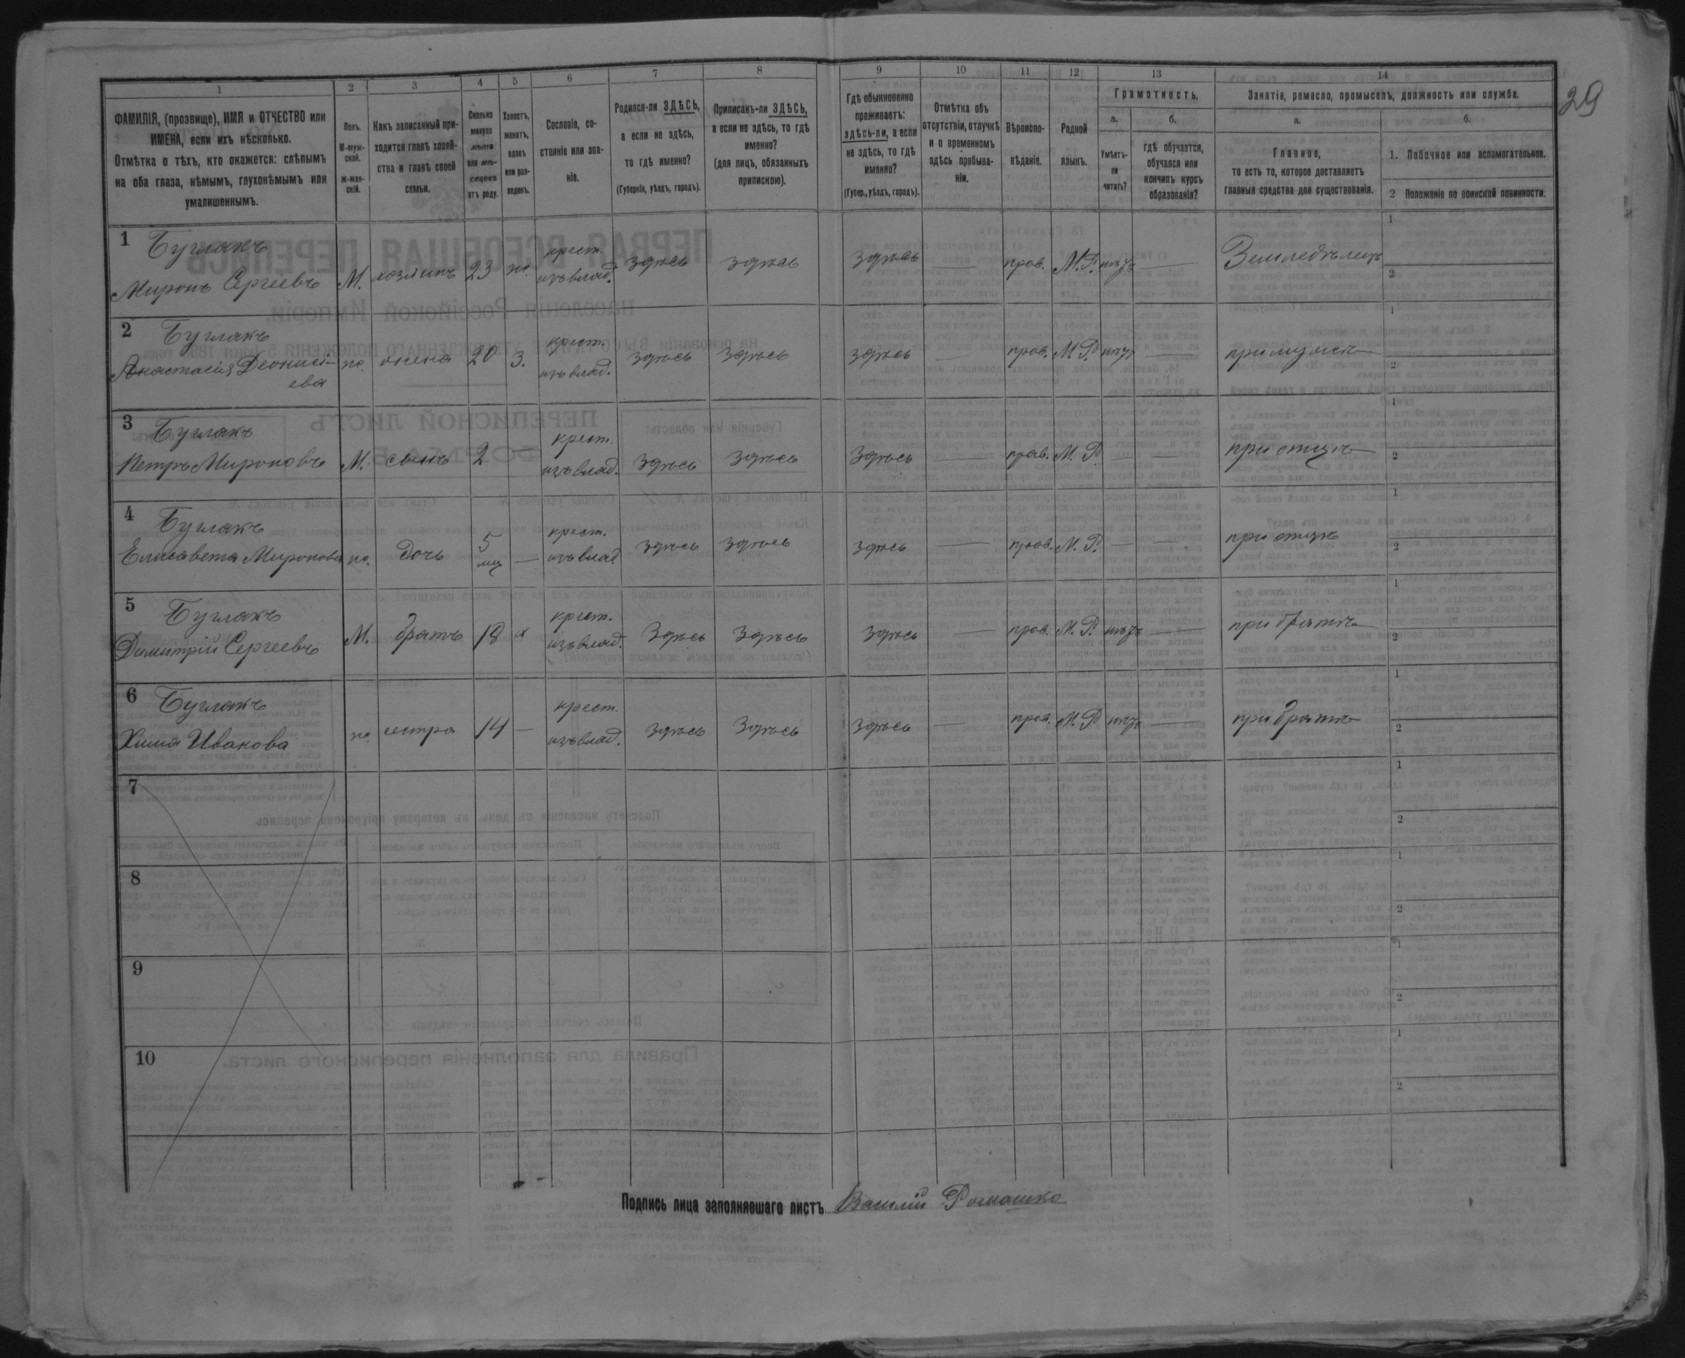 29
1 2 3 4 5 6 7 8 9 10 11 12 13 14
ФАМИЛІЯ, (прозвище), ИМЯ и ОТЧЕСТВО или
ИМЕНА, если ихъ нѣсколько.
Отмѣтка о тѣхъ, кто окажется: слѣпымъ
на оба глаза, нѣмымъ, глухонѣмымъ или
умалишеннымъ.
Полъ.
М-муж-
ской.
ж-жен-
скій.
Какъ записанный при-
ходится главѣ хозяй-
ства и главѣ своей
семьи.
Сколько
минуло
лѣтъ
или мѣ-
сяцевъ
отъ роду.
Холостъ,
женатъ,
вдовъ
или раз-
веденъ.
Сословіе, со-
стояніе или зва-
ніе.
Родился-ли ЗДѢСЬ,
а если не здѣсь,
то гдѣ именно?
(Губернія, уѣздъ, городъ).
Приписанъ-ли ЗДѢСЬ,
а если не здѣсь, то гдѣ
именно?
(для лицъ, обязанныхъ
припискою).
Гдѣ обыкновенно
проживаетъ:
здѣсь-ли, а если
не здѣсь, то гдѣ
именно?
(Губер., уѣздъ, городъ).
Отмѣтка объ
отсутствіи, отлучкѣ
и о временномъ
здѣсь пребыва-
ніи.
Вѣроиспо-
вѣданіе.
Родной
языкъ.
Грамотность.
а.
Умѣетъ-
ли
читать?
б.
гдѣ обучается,
обучался или
кончилъ курсъ
образованія?
Занятіе, ремесло, промыселъ, должность или служба.
а.
Главное,
то есть то, которое доставляетъ
главныя средства для существованія.
б.
1. Побочное или вспомогательное.
2 Положеніе по воинской повинности.
1 Буглакъ
Миронъ Сергеевъ М. хозяинъ 23 ж. крест. изъ влад. здѣсь здѣсь здѣсь — прав. М.Р. нѣтъ — Земледѣлецъ 1 2
2 Буглакъ
Анастасія Деонисі-
ева ж. жена 20 З. крест. изъ влад. здѣсь здѣсь здѣсь — прав. М.Р. нѣтъ — при мужѣ 1 2
3 Буглакъ
Петръ Мироновъ М. сынъ 2 крест. изъ влад. здѣсь здѣсь здѣсь — прав. М.Р. — — при отцѣ 1 2
4 Буглакъ
Елисавета Миронова ж. дочь 5 мц — крест. изъ влад здѣсь здѣсь здѣсь — прав. М.Р. — — при отцѣ 1 2
5 Буглакъ
Димитрій Сергеевъ М. братъ 18 х крест. изъ влад. здѣсь здѣсь здѣсь — прав. М.Р. нѣтъ — при братѣ 1 2
6 Буглакъ
Химa Иванова ж. сестра 14 — крест. изъ влад. здѣсь здѣсь здѣсь — прав. М.Р. нѣтъ — при братѣ 1 2
7 1 2
8 1 2
9 1 2
10 1 2
Подпись лица заполнявшаго листъ Василій Ромашко